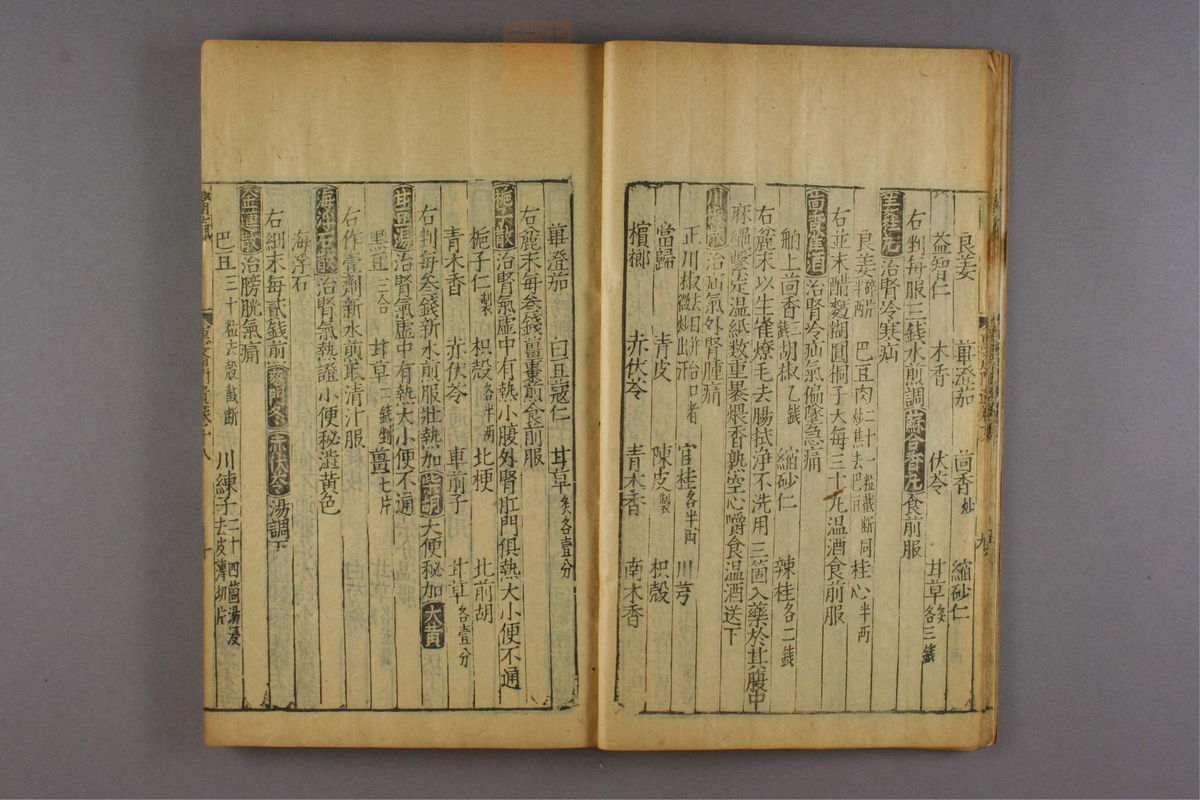 良姜 蓽澄茄 茴香炒 縮砂仁
益智仁 木香 伏苓 甘草炙各三錢
右剉每服三錢水煎調蘇合香元食前服
姜桂元治腎冷寒疝
良姜碎片半兩 巴豆肉二十一粒截斷同炒焦去巴豆 桂心半兩
右並末醋麪糊圓桐子大每三十元温酒食前服
茴香雀酒治腎冷疝氣偏墜急痛
舶上茴香三錢 胡椒乙錢 縮砂仁 辣桂各二錢
右麁末以生雀燎毛去腸拭净不洗用三箇入藥於其腹中
麻繩繫定温紙数重裹煨香熟空心嚼食温酒送下
川椒散治疝氣外腎腫痛
正川椒微炒出汗 官桂各半兩 川芎
當歸 青皮 陳皮製 枳殼
檳榔 赤伏苓 青木香 南木香
蓽澄茄 白豆蔻仁 甘草炙各壹分
右麁末每叁錢薑棗煎食前服
梔子散治腎氣虚中有熱小腹外腎肛門俱熱大小便不通
梔子仁製 枳殼各半兩 北梗 北前胡
青木香 赤伏苓 車前子 甘草各壹分
右剉每叁錢新水煎服壯熱加柴胡大便秘加大黄
甘豆湯治腎氣虚中有熱大小便不通
黑豆三合 甘草二錢剉 薑七片
右作壹劑新水煎取清汁服
海浮石散治腎氣熱證小便秘澁黄色
海浮石
右細末每貳錢煎麥門冬赤伏苓湯調下
金蓮散治膀胱氣痛
巴豆三十粒去殼截斷 川練子二十四箇湯浸去皮薄切片